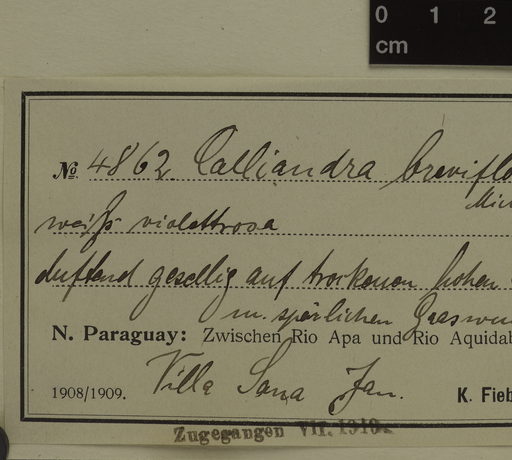 0 1 2
cm
No 4862. Calliandra breviflo
weiß violettrosa
duftend gesellig auf trockenen hohen
m. spärlichen
N. Paraguay: Zwischen Rio Apa und Rio Aquidab
1908/1909. Villa Sana Jan. K. Fieb
Zugegangen VII. 1910.